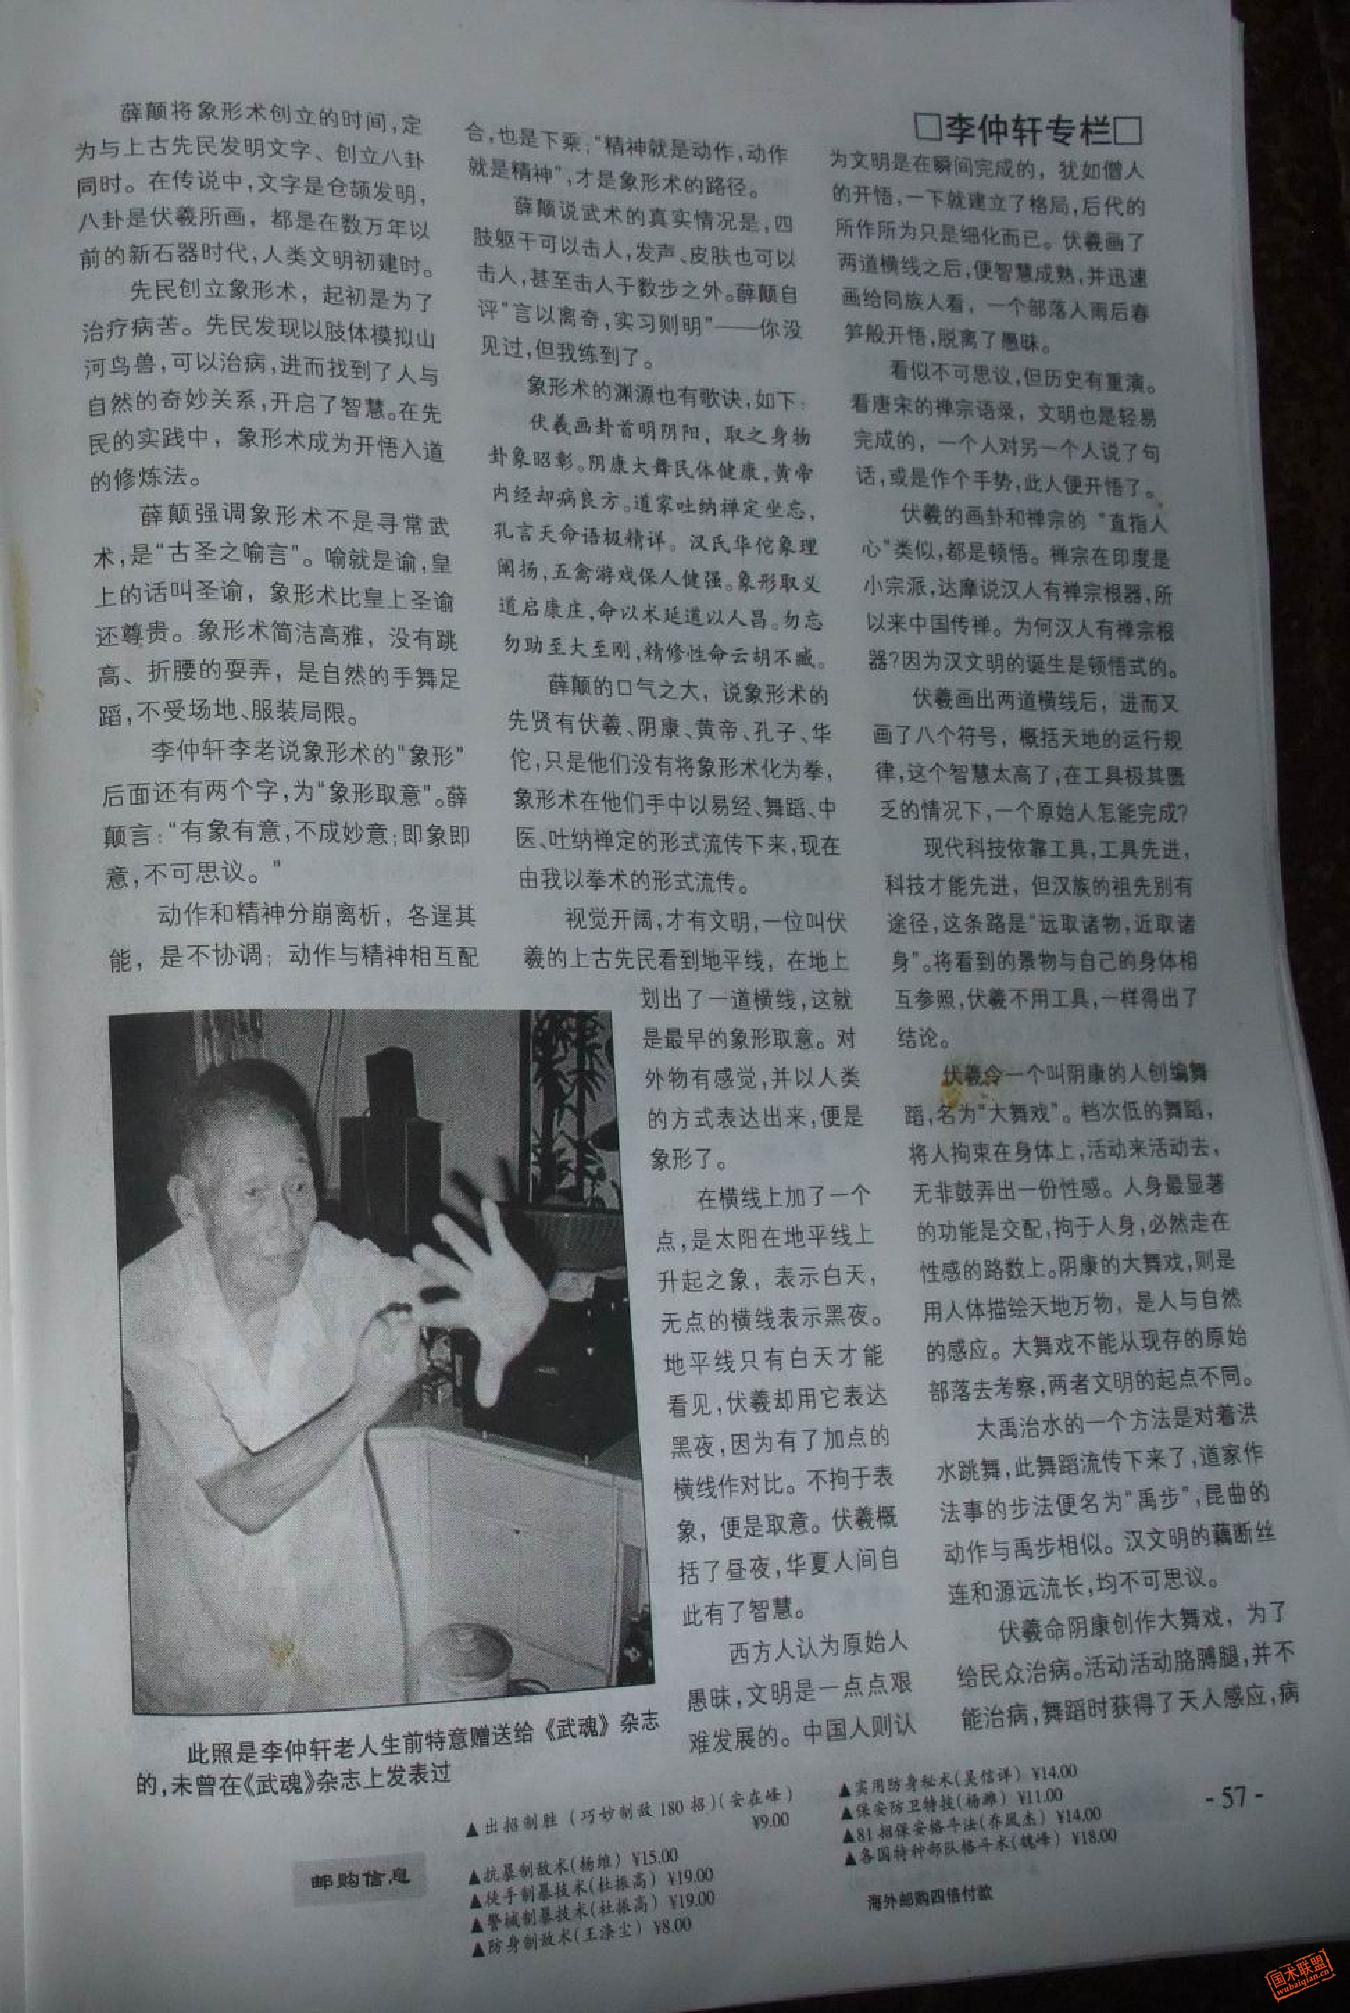 □李仲轩专栏□
薛颠将象形术创立的时间,定
为与上古先民发明文字、创立八卦
同时。在传说中,文字是仓颉发明,
八卦是伏羲所画，都是在数万年以
前的新石器时代,人类文明初建时。
先民创立象形术，起初是为了
治疗病苦。先民发现以肢体模拟山
河鸟兽,可以治病,进而找到了人与
自然的奇妙关系,开启了智慧。在先
民的实践中，象形术成为开悟入道
的修炼法。
薛颠强调象形术不是寻常武
术,是“古圣之喻言”。喻就是谕,皇
上的话叫圣谕，象形术比皇上圣谕
还尊贵。象形术简洁高雅，没有跳
高、折腰的耍弄，是自然的手舞足
蹈,不受场地、服装局限。
李仲轩李老说象形术的“象形”
后面还有两个字,为“象形取意”。薛
颠言:“有象有意,不成妙意;即象即
意,不可思议。”
动作和精神分崩离析，各逞其
能，是不协调；动作与精神相互配
合,也是下乘;“精神就是动作,动作
就是精神”,才是象形术的路径。
薛颠说武术的真实情况是,四
肢躯干可以击人,发声、皮肤也可以
击人,甚至击人于数步之外。薛颠自
评“言以离奇,实习则明”——你没
见过,但我练到了。
象形术的渊源也有歌诀,如下:
伏羲画卦首明阴阳，取之身物
卦象昭彰。阴康大舞民体健康,黄帝
内经却病良方。道家吐纳禅定坐忘,
孔言天命语极精详。汉氏华佗象理
阐扬,五禽游戏保人健强。象形取义
道启康庄,命以术延道以人昌。勿忘
勿助至大至刚,精修性命云胡不臧。
薛颠的口气之大，说象形术的
先贤有伏羲、阴康、黄帝、孔子、华
佗,只是他们没有将象形术化为拳,
象形术在他们手中以易经、舞蹈、中
医、吐纳禅定的形式流传下来,现在
由我以拳术的形式流传。
视觉开阔,才有文明,一位叫伏
羲的上古先民看到地平线，在地上
划出了一道横线,这就
是最早的象形取意。对
外物有感觉,并以人类
的方式表达出来,便是
象形了。
在横线上加了一个
点,是太阳在地平线上
升起之象，表示白天,
无点的横线表示黑夜。
地平线只有白天才能
看见,伏羲却用它表达
黑夜,因为有了加点的
横线作对比。不拘于表
象，便是取意。伏羲概
括了昼夜,华夏人间自
此有了智慧。
西方人认为原始人
愚昧,文明是一点点艰
难发展的。中国人则认
为文明是在瞬间完成的，犹如僧人
的开悟,一下就建立了格局,后代的
所作所为只是细化而已。伏羲画了
两道横线之后,便智慧成熟,并迅速
画给同族人看，一个部落人雨后春
笋般开悟,脱离了愚昧。
看似不可思议,但历史有重演。
看唐宋的禅宗语录，文明也是轻易
完成的，一个人对另一个人说了句
话,或是作个手势,此人便开悟了。
伏羲的画卦和禅宗的“直指人
心”类似,都是顿悟。禅宗在印度是
小宗派,达摩说汉人有禅宗根器,所
以来中国传禅。为何汉人有禅宗根
器?因为汉文明的诞生是顿悟式的。
伏羲画出两道横线后，进而又
画了八个符号，概括天地的运行规
律,这个智慧太高了,在工具极其匮
乏的情况下,一个原始人怎能完成?
现代科技依靠工具,工具先进,
科技才能先进，但汉族的祖先别有
途径,这条路是“远取诸物,近取诸
身”。将看到的景物与自己的身体相
互参照,伏羲不用工具,一样得出了
结论。
伏羲令一个叫阴康的人创编舞
蹈,名为“大舞戏”。档次低的舞蹈,
将人拘束在身体上,活动来活动去,
无非鼓弄出一份性感。人身最显著
的功能是交配,拘于人身,必然走在
性感的路数上。阴康的大舞戏,则是
用人体描绘天地万物，是人与自然
的感应。大舞戏不能从现存的原始
部落去考察,两者文明的起点不同。
大禹治水的一个方法是对着洪
水跳舞,此舞蹈流传下来了,道家作
法事的步法便名为“禹步”,昆曲的
动作与禹步相似。汉文明的藕断丝
连和源远流长,均不可思议。
伏羲命阴康创作大舞戏，为了
给民众治病。活动活动胳膊腿,并不
能治病,舞蹈时获得了天人感应,病
此照是李仲轩老人生前特意赠送给《武魂》杂志
的,未曾在《武魂》杂志上发表过
邮购信息
▲出招制胜（巧妙制敌180招）(安在峰)
¥9.00
▲抗暴制敌术(杨维) ¥15.00
▲徒手制暴技术(杜振高) ¥19.00
▲警械制暴技术(杜振高) ¥19.00
▲防身制敌术(王涤尘) ¥8.00
▲实用防身秘术(吴信详) ¥14.00
▲保安防卫特技(杨濉) ¥11.00
▲81招保安格斗法(乔凤杰) ¥14.00
▲各国特种部队格斗术(魏峰) ¥18.00
海外邮购四倍付款
-57-
国术联盟
wubaiqian.cn